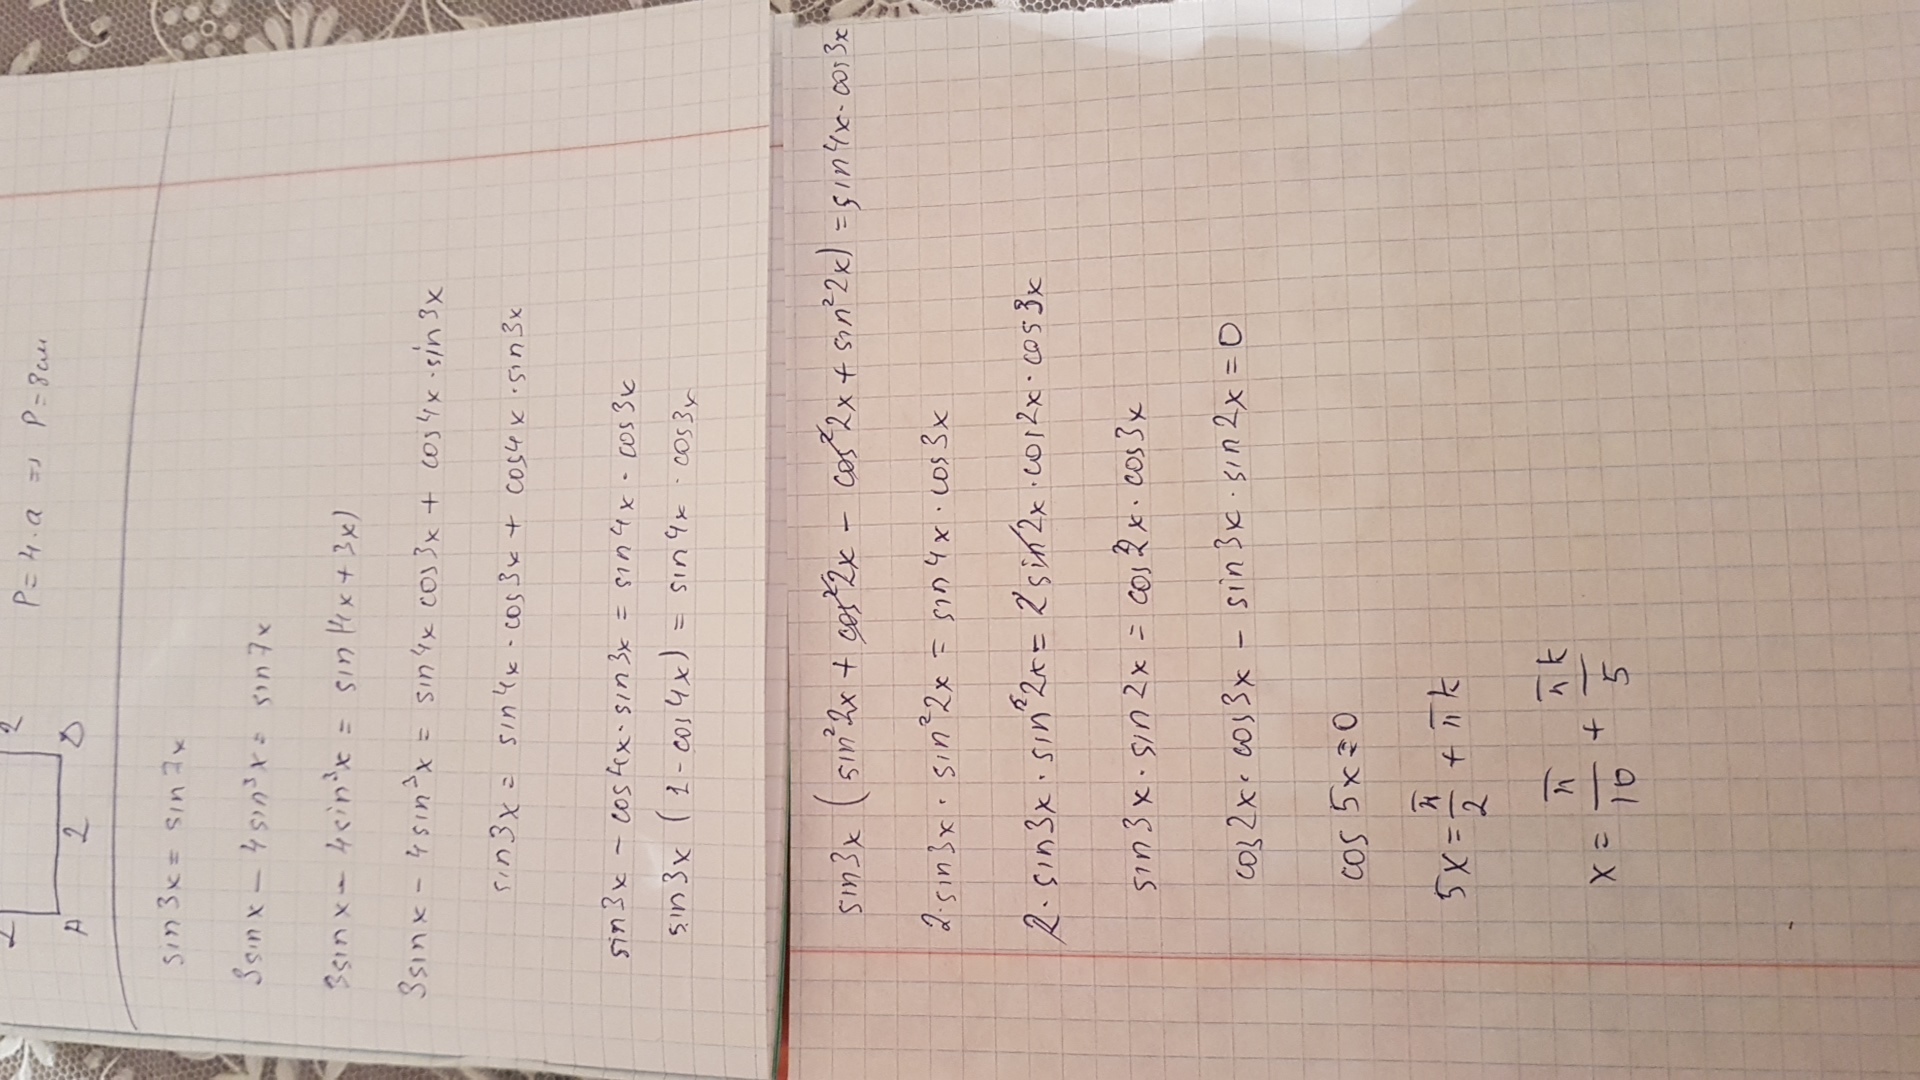 P = 4 · a => P = 8см
2
2
2
A
D
sin3x = sin7x
3sinx - 4sin³x = sin7x
3sinx - 4sin³x = sin(4x + 3x)
3sinx - 4sin³x = sin4x cos3x + cos4x · sin3x
sin3x = sin4x · cos3x + cos4x · sin3x
sin3x - cos4x · sin3x = sin4x · cos3x
sin3x (1 - cos4x) = sin4x · cos3x
sin3x (sin²2x + cos²2x - cos²2x + sin²2x) = sin4x · cos3x
2 · sin3x · sin²2x = sin4x · cos3x
2 · sin3x · sin²2x = 2sin2x · cos2x · cos3x
sin3x · sin2x = cos2x · cos3x
cos2x · cos3x - sin3x · sin2x = 0
cos5x = 0
5x = π/2 + πk
x = π/10 + πk/5